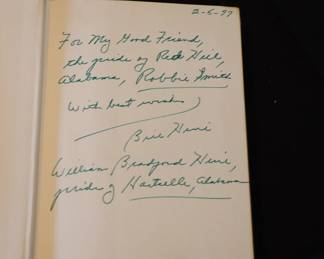 2-5-77
For My Good Friend,
the pride of Red Hill,
Alabama, Robbie Smith
With best wishes
Bill Huie
William Bradford Huie,
pride of Hartselle, Alabama